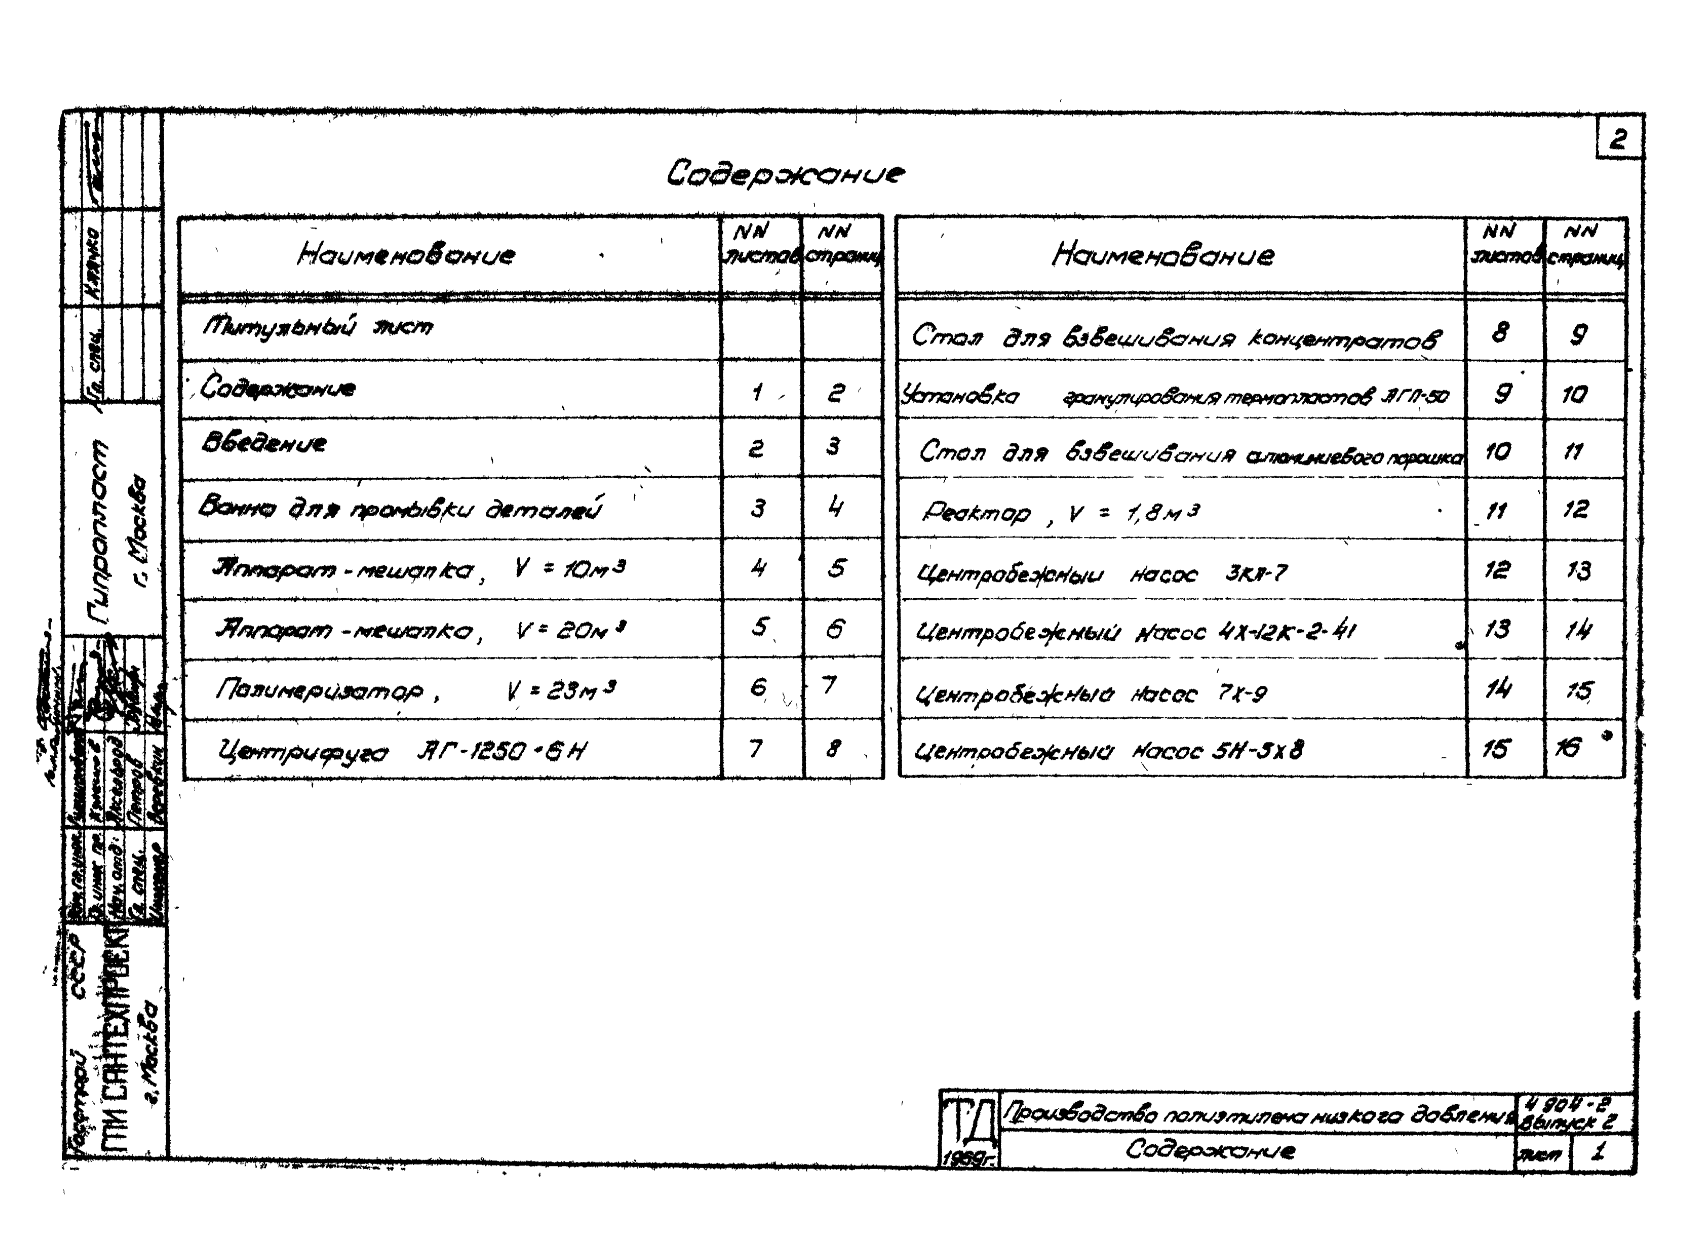 2
Содержание
Наименование NN листов NN страниц
Титульный лист
Содержание 1 2
Введение 2 3
Ванна для промывки деталей 3 4
Аппарат-мешалка, V = 10м³ 4 5
Аппарат-мешалка, V = 20м³ 5 6
Полимеризатор, V = 23м³ 6 7
Центрифуга АГ-1250·6Н 7 8
Наименование NN листов NN страниц
Стол для взвешивания концентратов 8 9
Установка гранулирования термопластов ЛГП-50 9 10
Стол для взвешивания алюминиевого порошка 10 11
Реактор, V = 1,8м³ 11 12
Центробежный насос 3КЛ-7 12 13
Центробежный насос 4Х-12К-2-41 13 14
Центробежный насос 7Х-9 14 15
Центробежный насос 5Н-5х8 15 16
Гл. спец. Клячко
Гипропласт
г. Москва
Нач. отд. Аксельрод
Гл. спец. Петров
Инженер Веревкин
Госстрой СССР
ГПИ САНТЕХПРОЕКТ
г. Москва
ТД
1969г.
Производство полиэтилена низкого давления
4 904-2
Выпуск 2
Содержание
лист 1